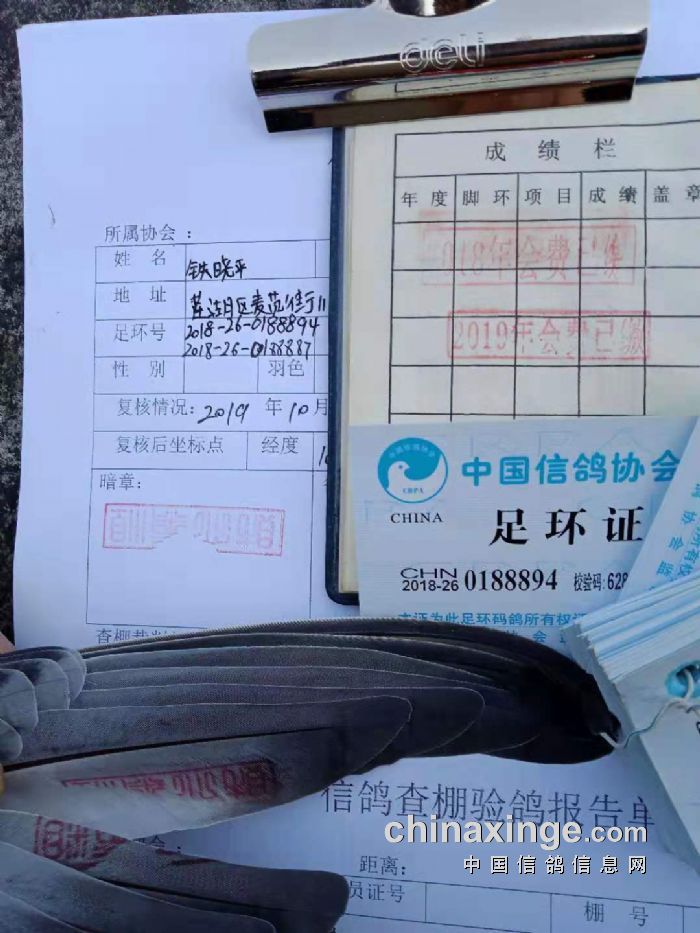 deli
成绩栏
年度 脚环 项目 成绩 盖章
018年会费已缴
2019年会费已缴
所属协会：
姓名 铁晓平
地址
足环号 2018-26-0188894
2018-26-0188887
性别 羽色
复核情况：2019 年 10 月
复核后坐标点 经度
暗章：
中国信鸽协会
CRPA
CHINA
足环证
CHN
2018-26 0188894 校验码:628
本证为此足环码鸽所有权证
信鸽查棚验鸽报告单
chinaxinge.com
中国信鸽信息网
距离：
员证号
棚号